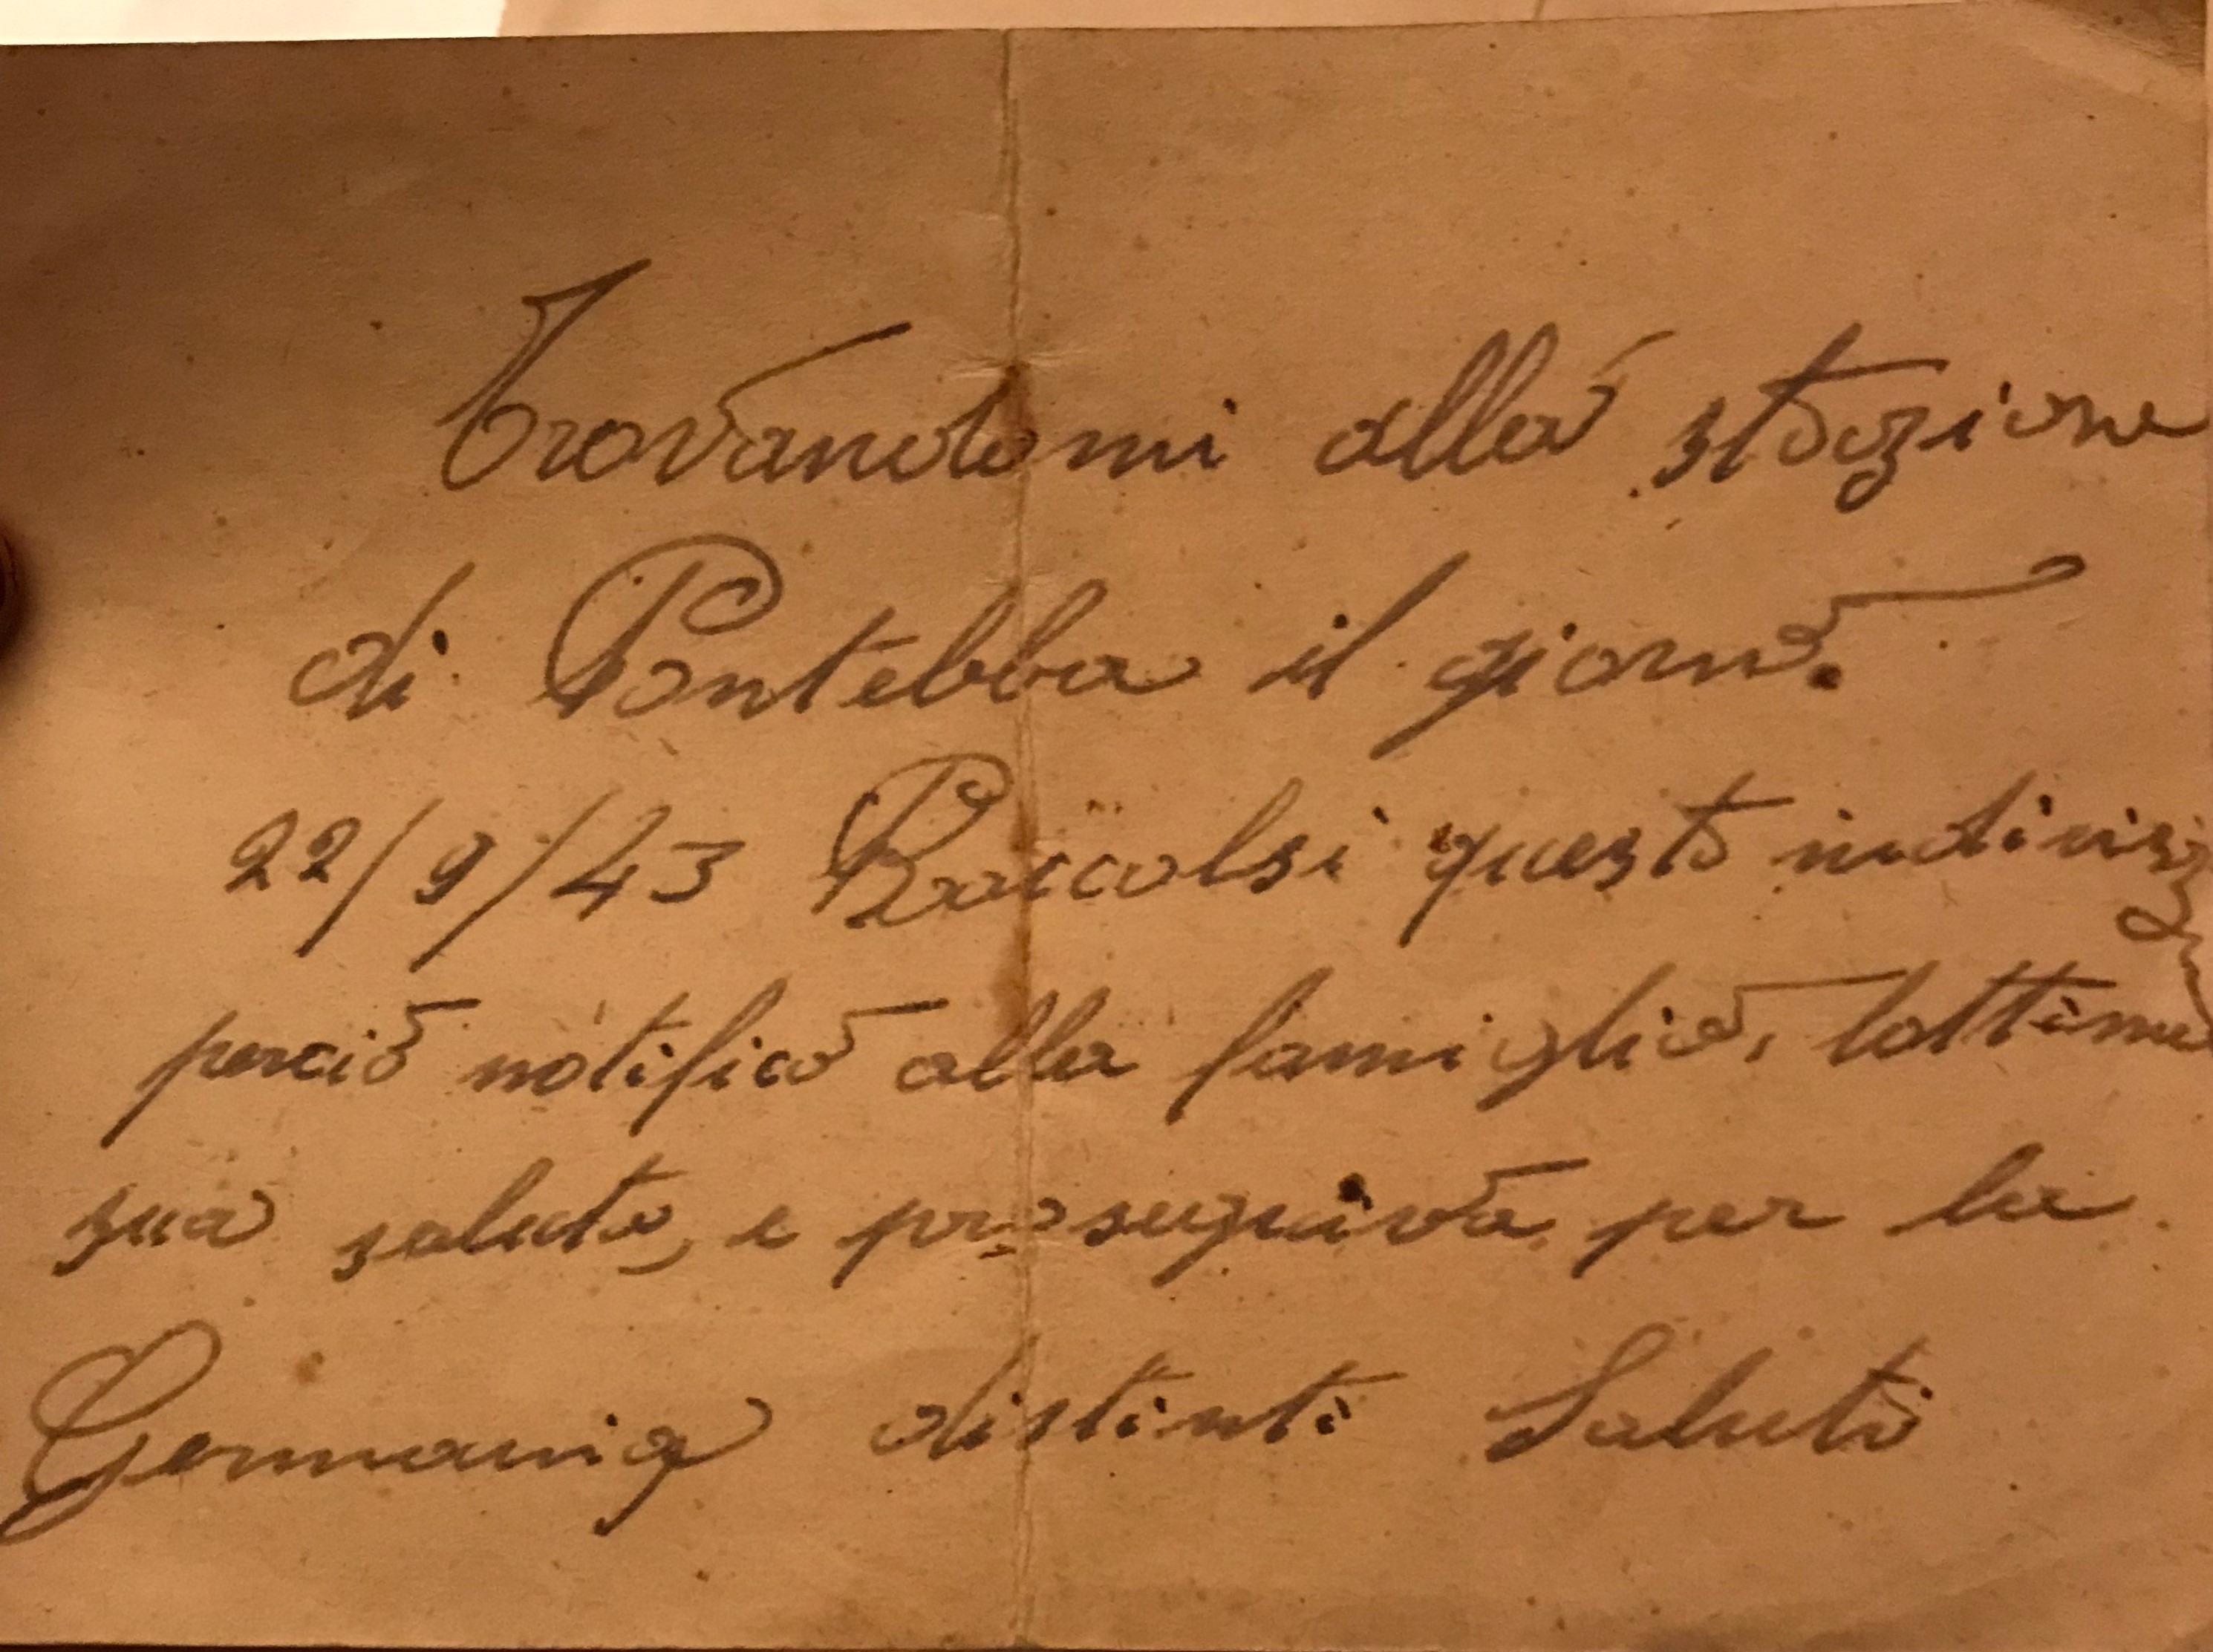 Trovandomi alla stazione
di Pontebba il giorno
22/9/43 Raccolsi questo indirizzo
perciò notifico alla famiglia, lottima
sua salute, e proseguiva per la
Germania distinti Saluti